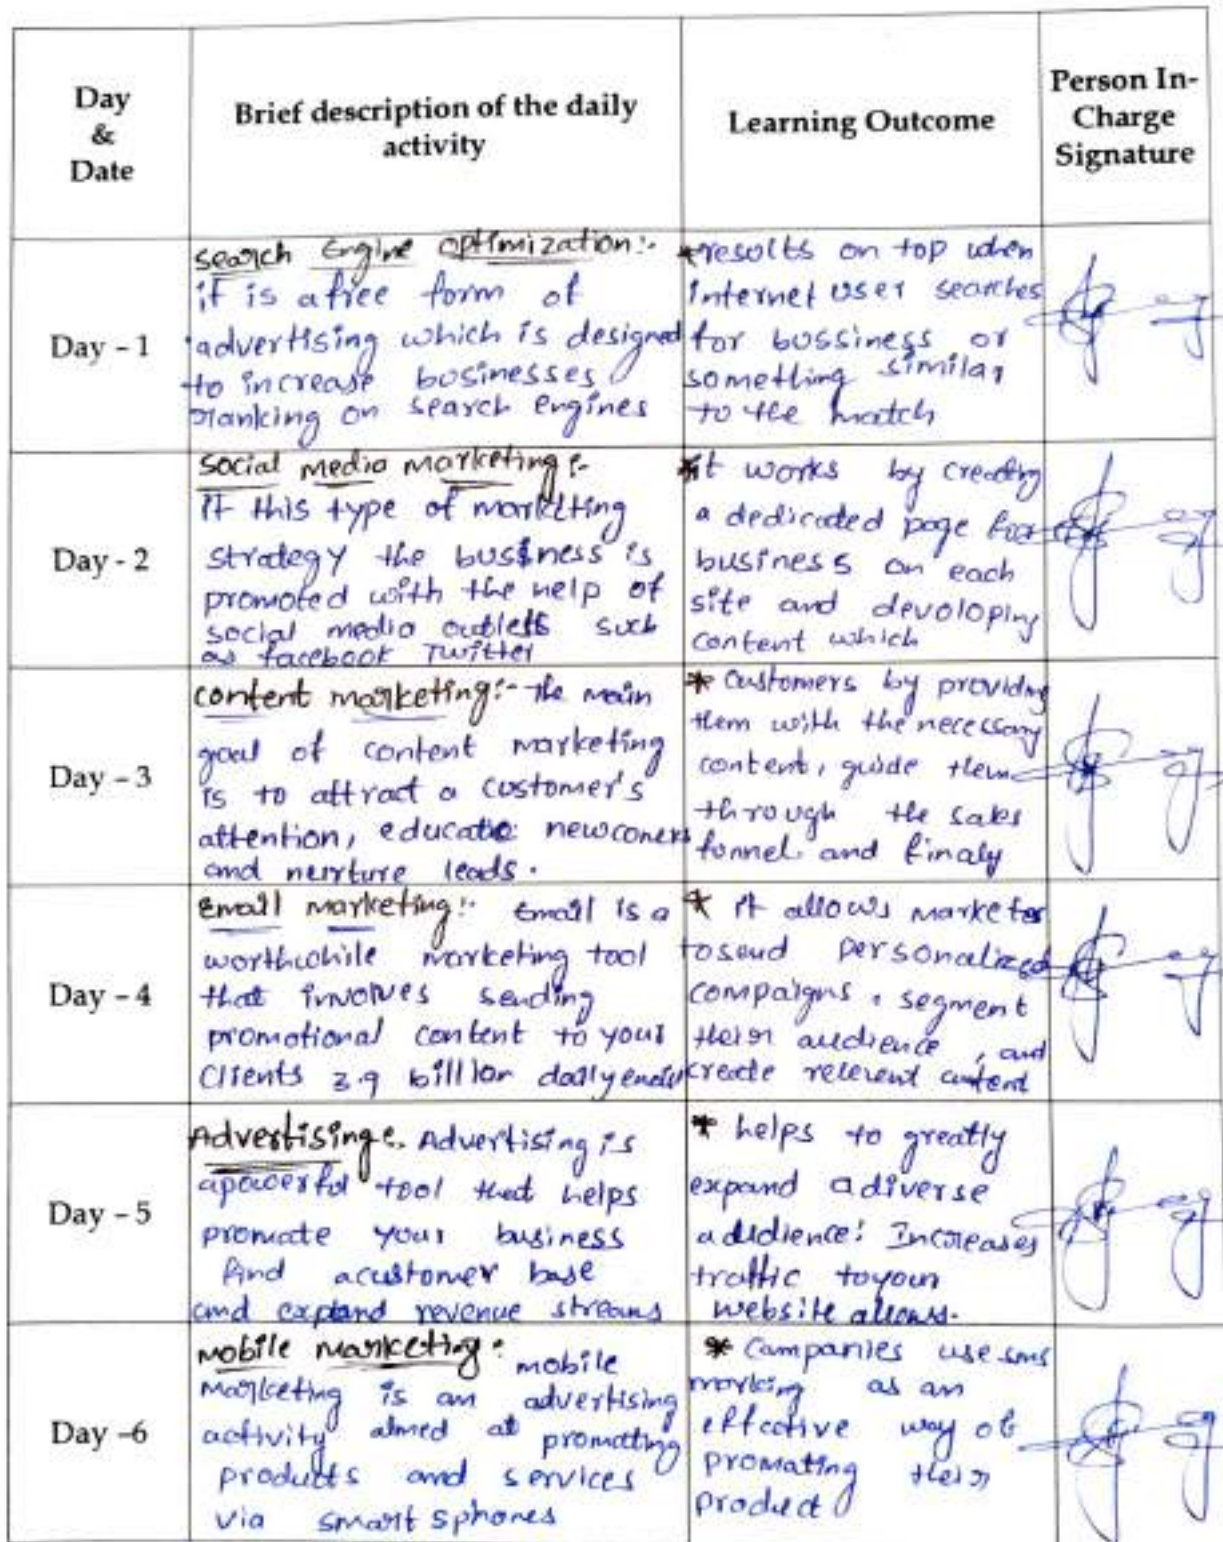 Day
&
Date
Brief description of the daily
activity
Learning Outcome
Person In-
Charge
Signature
Day - 1
Search Engine Optimization:-
it is a free form of
advertising which is designed
to increase businesses
ranking on search engines
*results on top when
internet user searches
for bussiness or
something similar
to the match
Day - 2
Social media marketing:-
It this type of marktting
strategy the business is
promoted with the help of
social media outlets such
as facebook Twitter
*it works by creating
a dedicated page for
business on each
site and devoloping
content which
Day - 3
content marketing:- the main
goal of content marketing
is to attract a customer's
attention, educate newcomers
and nurture leads.
* Customers by providing
them with the necessary
content, guide them
through the sales
funnel and finaly
Day - 4
Email marketing:- Email is a
worthwhile marketing tool
that involves sending
promotional content to your
Clients 3.9 billion daily
* it allows marketer
to send personalized
compaigns, segment
their audience, and
create relevent content
Day - 5
Advertising:. Advertising is
a powerful tool that helps
promote your business
find a customer base
and expand revenue streams
* helps to greatly
expand a diverse
audience: Increases
traffic to your
website allows.
Day -6
mobile marketing: mobile
marketing is an advertising
activity aimed at promoting
products and services
via smart sphones
* Companies use sms
marking as an
effective way of
promating their
product